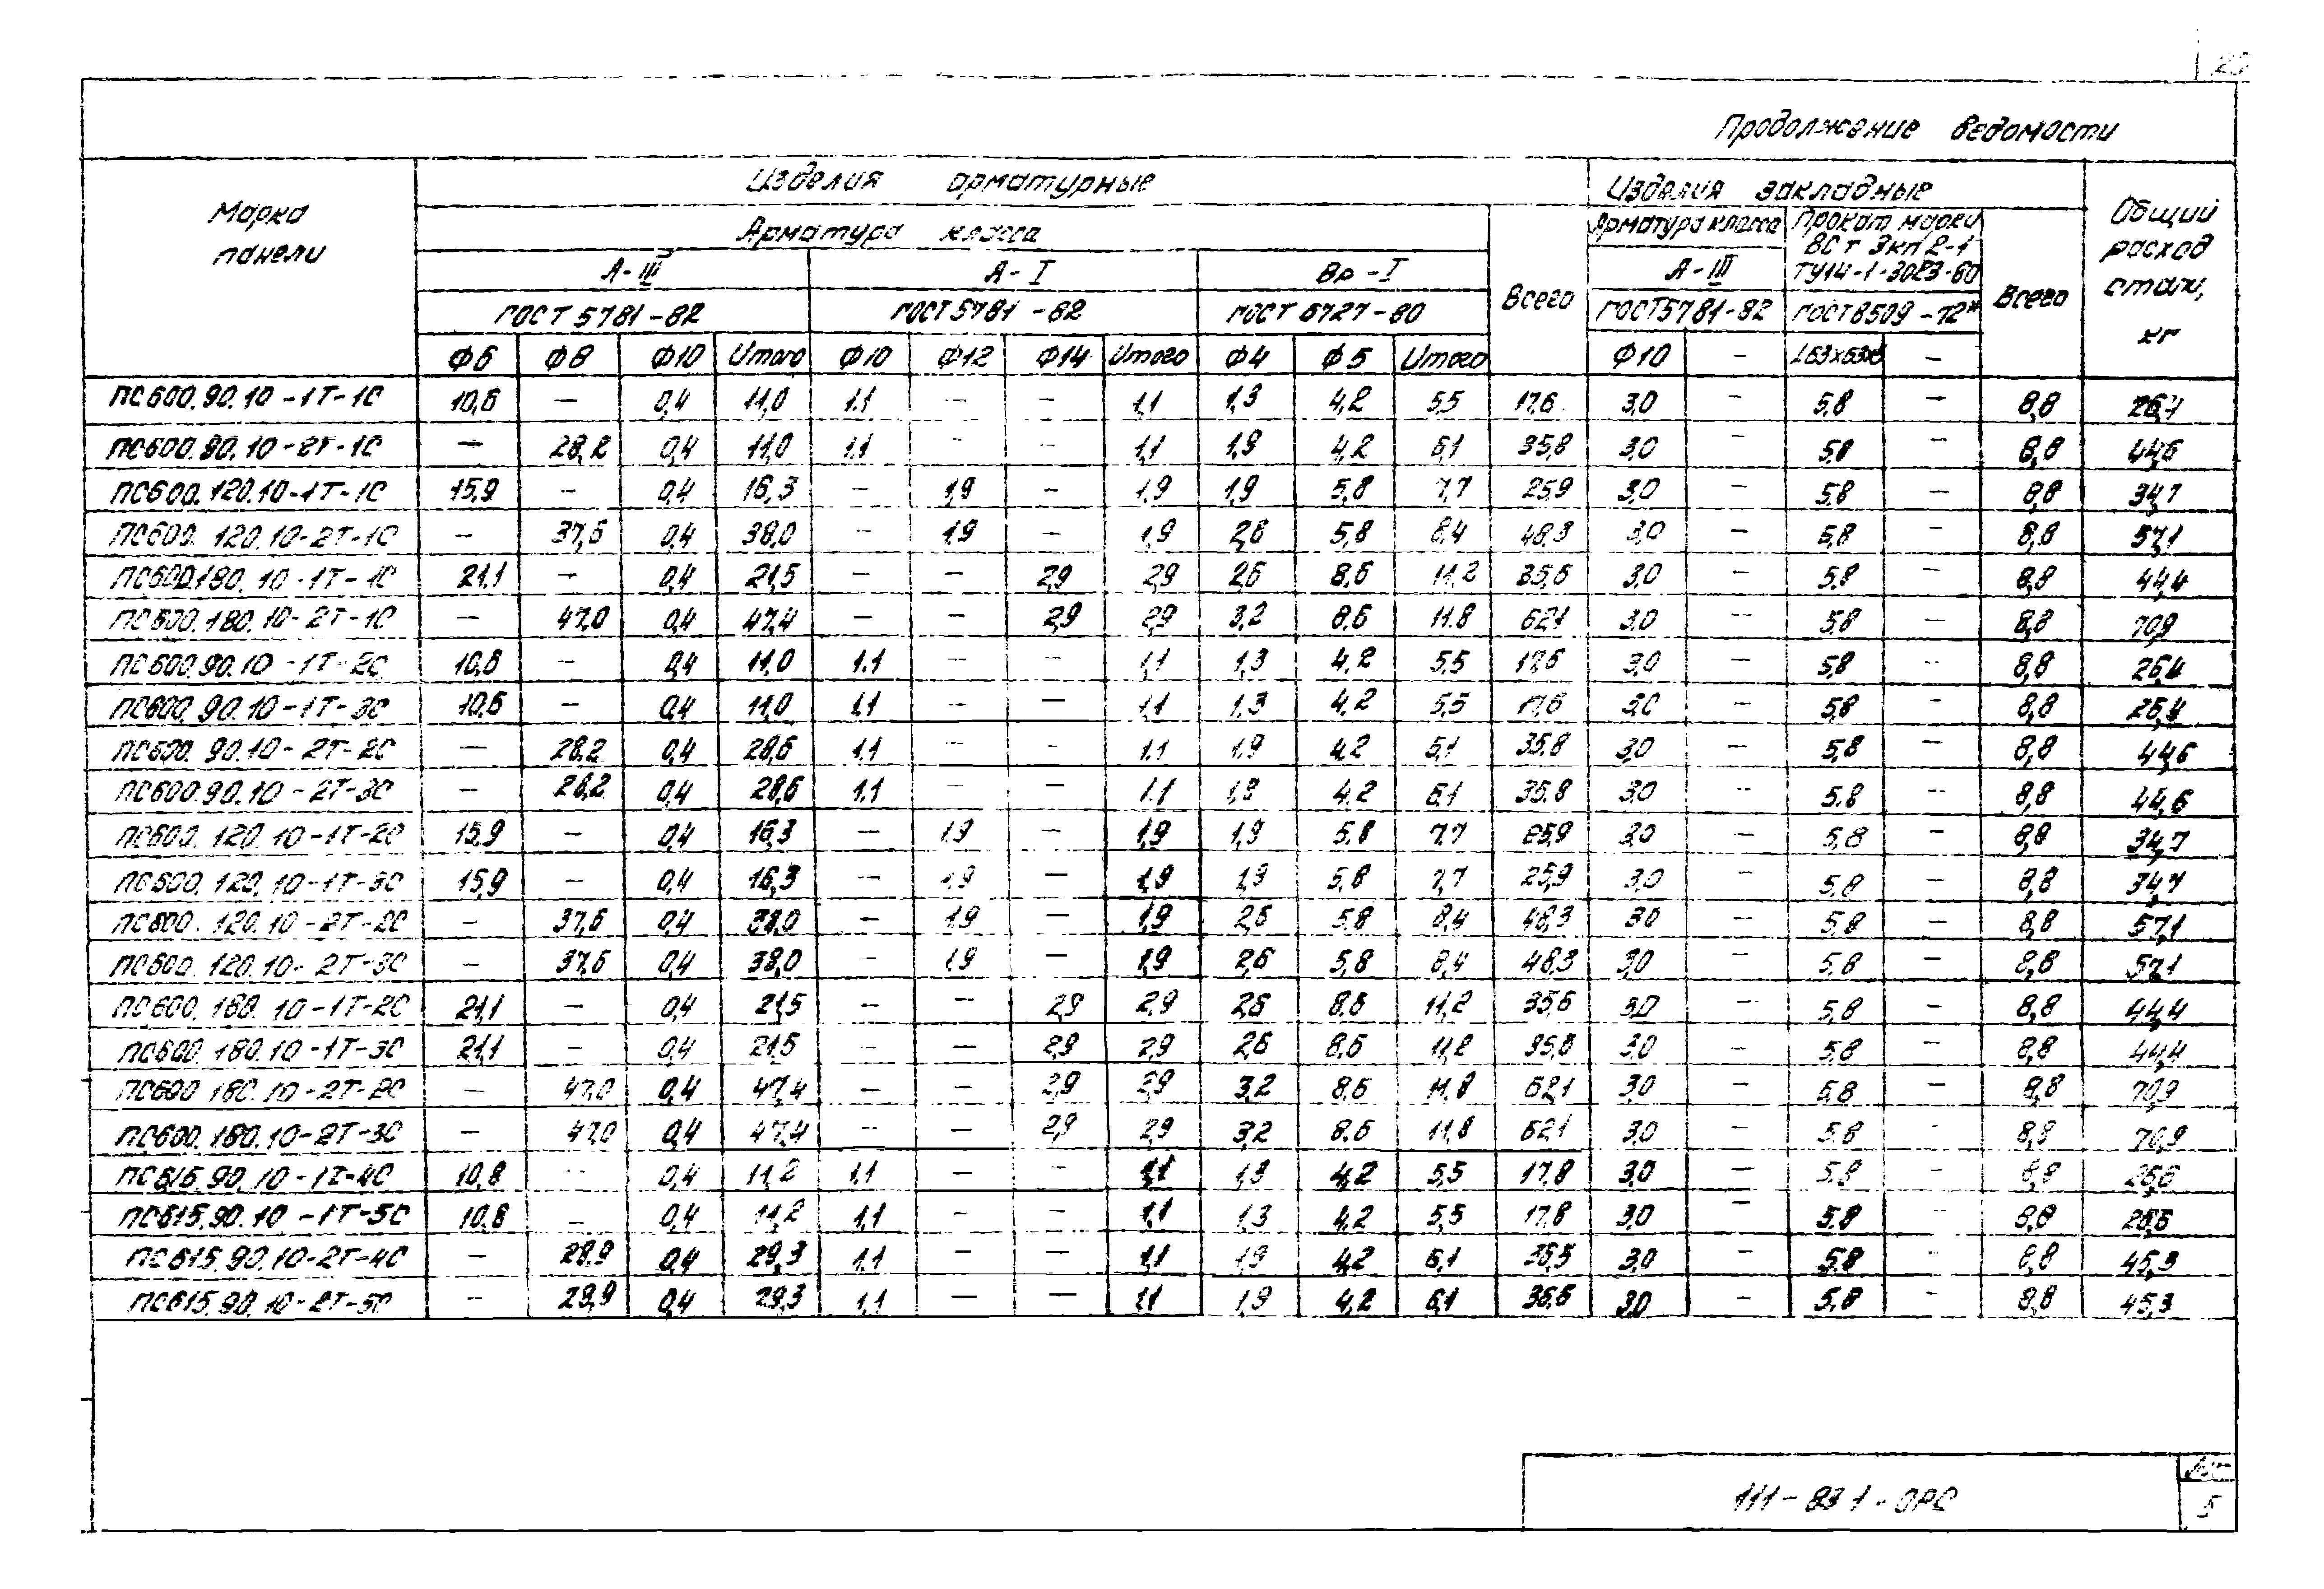 Продолжение ведомости
Марка панели
Изделия арматурные
Изделия закладные
Общий расход стали, кг
Арматура класса
Всего
Арматура класса
Прокат марки ВСт 3кп2-1 ТУ14-1-3023-80
Всего
А-III
А-I
Вр-I
А-III
ГОСТ 5781-82
ГОСТ 5781-82
ГОСТ 6727-80
ГОСТ 5781-82
ГОСТ 8509-72*
Ф6 Ф8 Ф10 Итого Ф10 Ф12 Ф14 Итого Ф4 Ф5 Итого Ф10 – –
ПС600.90.10-1Т-1С 10,6 – 0,4 11,0 1.1 – – 1,1 1,3 4,2 5,5 17,6 3,0 – 5,8 – 8,8 26,4
ПС600.90.10-2Т-1С – 28,2 0,4 11,0 1.1 – – 1,1 1,9 4,2 6,1 35,8 3,0 – 5,8 – 8,8 44,6
ПС600.120.10-1Т-1С 15,9 – 0,4 16,3 – 1,9 – 1,9 1,9 5,8 7,7 25,9 3,0 – 5,8 – 8,8 34,7
ПС600.120.10-2Т-1С – 37,6 0,4 38,0 – 1,9 – 1,9 2,6 5,8 8,4 48,3 3,0 – 5,8 – 8,8 57,1
ПС600.180.10-1Т-1С 21,1 – 0,4 21,5 – – 2,9 2,9 2,6 8,6 11,2 35,6 3,0 – 5,8 – 8,8 44,4
ПС600.180.10-2Т-1С – 47,0 0,4 47,4 – – 2,9 2,9 3,2 8,6 11.8 62,1 3,0 – 5,8 – 8,8 70,9
ПС600.90.10-1Т-2С 10,6 – 0,4 11,0 1.1 – – 1,1 1,3 4,2 5,5 17,6 3,0 – 5,8 – 8,8 26,4
ПС600.90.10-1Т-3С 10,6 – 0,4 11,0 1,1 – – 1,1 1,3 4,2 5,5 17,6 3,0 – 5,8 – 8,8 26,4
ПС600.90.10-2Т-2С – 28,2 0,4 28,6 1.1 – – 1.1 1,9 4,2 6,1 35,8 3,0 – 5,8 – 8,8 44,6
ПС600.90.10-2Т-3С – 28,2 0,4 28,6 1.1 – – 1.1 1,9 4,2 6,1 35,8 3,0 – 5,8 – 8,8 44,6
ПС600.120.10-1Т-2С 15,9 – 0,4 16,3 – 1,9 – 1,9 1,9 5,8 7,7 25,9 3,0 – 5,8 – 8,8 34,7
ПС600.120.10-1Т-3С 15,9 – 0,4 16,3 – 1,9 – 1,9 1,9 5,8 7,7 25,9 3,0 – 5,8 – 8,8 34,7
ПС600.120.10-2Т-2С – 37,6 0,4 38,0 – 1,9 – 1,9 2,6 5,8 8,4 48,3 3,0 – 5,8 – 8,8 57,1
ПС600.120.10-2Т-3С – 37,6 0,4 38,0 – 1,9 – 1,9 2,6 5,8 8,4 48,3 3,0 – 5,8 – 8,8 57,1
ПС600.180.10-1Т-2С 21,1 – 0,4 21,5 – – 2,9 2,9 2,6 8,6 11,2 35,6 3,0 – 5,8 – 8,8 44,4
ПС600.180.10-1Т-3С 21,1 – 0,4 21,5 – – 2,9 2,9 2,6 8,6 11,2 35,6 3,0 – 5,8 – 8,8 44,4
ПС600.180.10-2Т-2С – 47,0 0,4 47,4 – – 2,9 2,9 3,2 8,6 11,8 62,1 3,0 – 5,8 – 8,8 70,9
ПС600.180.10-2Т-3С – 47,0 0,4 47,4 – – 2,9 2,9 3,2 8,6 11,8 62,1 3,0 – 5,8 – 8,8 70,9
ПС615.90.10-1Т-4С 10,8 – 0,4 11,2 1,1 – – 1,1 1,3 4,2 5,5 17,8 3,0 – 5,8 – 8,8 26,6
ПС615.90.10-1Т-5С 10,8 – 0,4 11,2 1,1 – – 1,1 1,3 4,2 5,5 17,8 3,0 – 5,8 – 8,8 26,6
ПС615.90.10-2Т-4С – 28,9 0,4 29,3 1,1 – – 1,1 1,9 4,2 6,1 36,5 3,0 – 5,8 – 8,8 45,3
ПС615.90.10-2Т-5С – 28,9 0,4 29,3 1,1 – – 1,1 1,9 4,2 6,1 36,5 3,0 – 5,8 – 8,8 45,3
111-83 1-ОРС
5